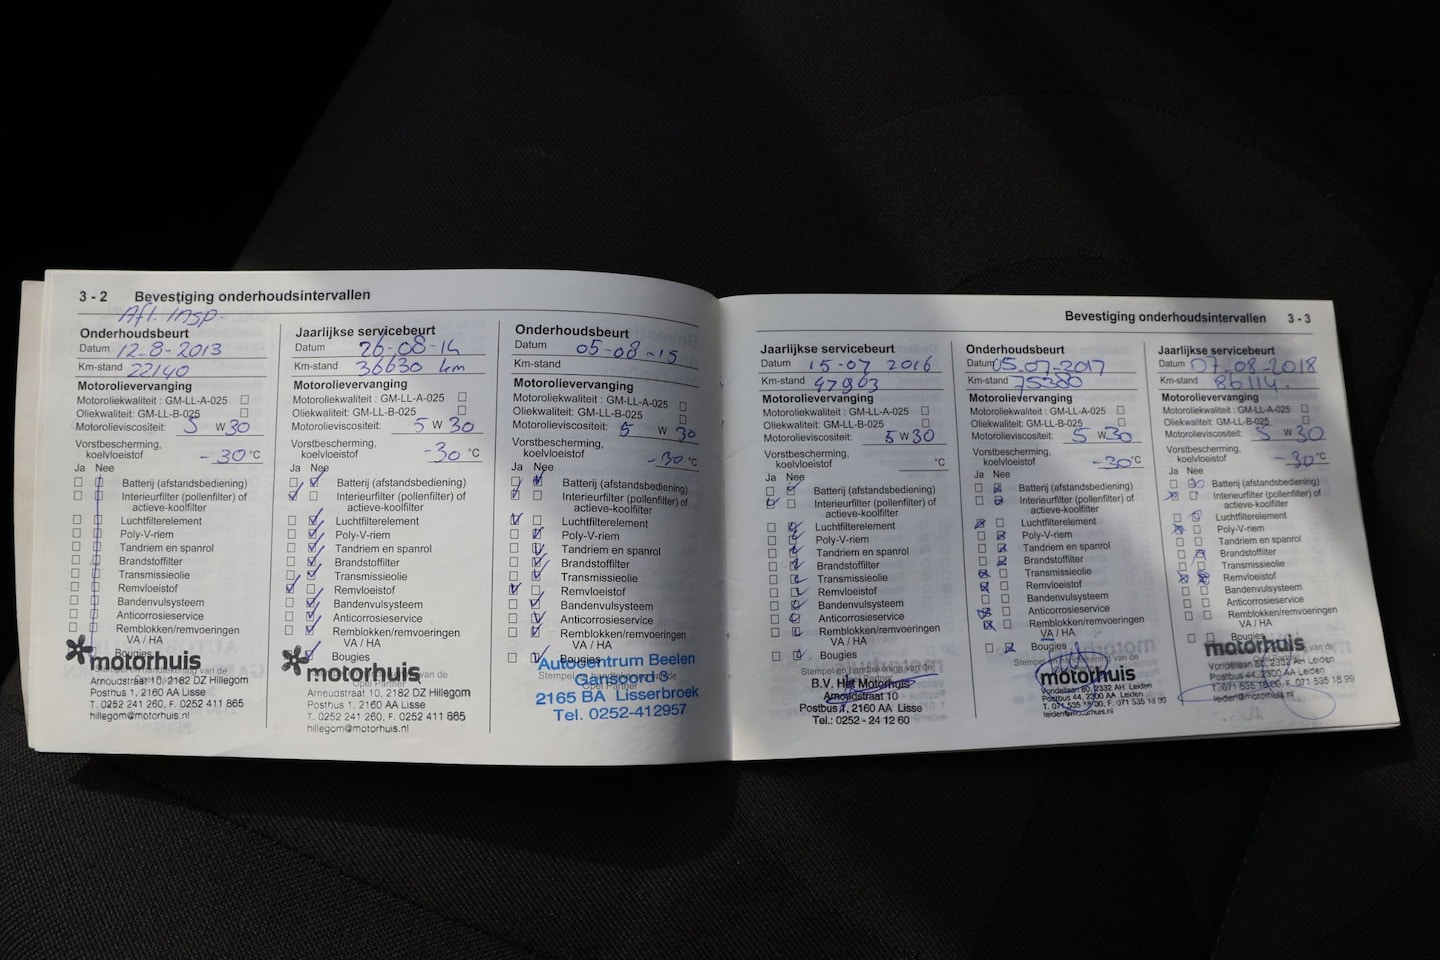 3 - 2 Bevestiging onderhoudsintervallen
Afl. Insp.
Onderhoudsbeurt
Datum 12-8-2013
Km-stand 22140
Motorolievervanging
Motoroliekwaliteit : GM-LL-A-025
Oliekwaliteit: GM-LL-B-025
Motorolieviscositeit: 5 W 30
Vorstbescherming,
koelvloeistof -30 °C
Ja Nee
Batterij (afstandsbediening)
Interieurfilter (pollenfilter) of
actieve-koolfilter
Luchtfilterelement
Poly-V-riem
Tandriem en spanrol
Brandstoffilter
Transmissieolie
Remvloeistof
Bandenvulsysteem
Anticorrosieservice
Remblokken/remvoeringen
VA / HA
Bougies
motorhuis
Arnoudstraat 10, 2182 DZ Hillegom
Posthus 1, 2160 AA Lisse
T. 0252 241 260, F. 0252 411 865
hillegom@motorhuis.nl
Jaarlijkse servicebeurt
Datum 26-08-14
Km-stand 36630 km
Motorolievervanging
Motoroliekwaliteit : GM-LL-A-025
Oliekwaliteit: GM-LL-B-025
Motorolieviscositeit: 5 W 30
Vorstbescherming,
koelvloeistof -30 °C
Ja Nee
Batterij (afstandsbediening)
Interieurfilter (pollenfilter) of
actieve-koolfilter
Luchtfilterelement
Poly-V-riem
Tandriem en spanrol
Brandstoffilter
Transmissieolie
Remvloeistof
Bandenvulsysteem
Anticorrosieservice
Remblokken/remvoeringen
VA / HA
Bougies
motorhuis
Arnoudstraat 10, 2182 DZ Hillegom
Postbus 1, 2160 AA Lisse
T. 0252 241 260, F. 0252 411 865
hillegom@motorhuis.nl
Onderhoudsbeurt
Datum 05-08-15
Km-stand
Motorolievervanging
Motoroliekwaliteit : GM-LL-A-025
Oliekwaliteit: GM-LL-B-025
Motorolieviscositeit: 5 W 30
Vorstbescherming,
koelvloeistof -30 °C
Ja Nee
Batterij (afstandsbediening)
Interieurfilter (pollenfilter) of
actieve-koolfilter
Luchtfilterelement
Poly-V-riem
Tandriem en spanrol
Brandstoffilter
Transmissieolie
Remvloeistof
Bandenvulsysteem
Anticorrosieservice
Remblokken/remvoeringen
VA / HA
Bougies
Autocentrum Beelen
Gansoord 3
2165 BA Lisserbroek
Tel. 0252-412957
Bevestiging onderhoudsintervallen 3 - 3
Jaarlijkse servicebeurt
Datum 15-07 2016
Km-stand 47963
Motorolievervanging
Motoroliekwaliteit : GM-LL-A-025
Oliekwaliteit: GM-LL-B-025
Motorolieviscositeit: 5 W 30
Vorstbescherming,
koelvloeistof °C
Ja Nee
Batterij (afstandsbediening)
Interieurfilter (pollenfilter) of
actieve-koolfilter
Luchtfilterelement
Poly-V-riem
Tandriem en spanrol
Brandstoffilter
Transmissieolie
Remvloeistof
Bandenvulsysteem
Anticorrosieservice
Remblokken/remvoeringen
VA / HA
Bougies
Stempel en handtekening van de
B.V. Het Motorhuis
Arnoudstraat 10
Postbus 1, 2160 AA Lisse
Tel.: 0252 - 24 12 60
Onderhoudsbeurt
Datum 05-07-2017
Km-stand 75380
Motorolievervanging
Motoroliekwaliteit : GM-LL-A-025
Oliekwaliteit: GM-LL-B-025
Motorolieviscositeit: 5 W 30
Vorstbescherming,
koelvloeistof -30 °C
Ja Nee
Batterij (afstandsbediening)
Interieurfilter (pollenfilter) of
actieve-koolfilter
Luchtfilterelement
Poly-V-riem
Tandriem en spanrol
Brandstoffilter
Transmissieolie
Remvloeistof
Bandenvulsysteem
Anticorrosieservice
Remblokken/remvoeringen
VA / HA
Bougies
motorhuis
Vondellaan 80, 2332 AH Leiden
Postbus 44, 2300 AA Leiden
T. 071 535 18 00, F. 071 535 18 99
leiden@motorhuis.nl
Jaarlijkse servicebeurt
Datum 07-08-2018
Km-stand 86114.
Motorolievervanging
Motoroliekwaliteit : GM-LL-A-025
Oliekwaliteit: GM-LL-B-025
Motorolieviscositeit: 5 W 30
Vorstbescherming,
koelvloeistof -30 °C
Ja Nee
Batterij (afstandsbediening)
Interieurfilter (pollenfilter) of
actieve-koolfilter
Luchtfilterelement
Poly-V-riem
Tandriem en spanrol
Brandstoffilter
Transmissieolie
Remvloeistof
Bandenvulsysteem
Anticorrosieservice
Remblokken/remvoeringen
VA / HA
Bougies
motorhuis
Vondellaan 80, 2332 AH Leiden
Postbus 44, 2300 AA Leiden
T. 071 535 18 00, F. 071 535 18 99
leiden@motorhuis.nl